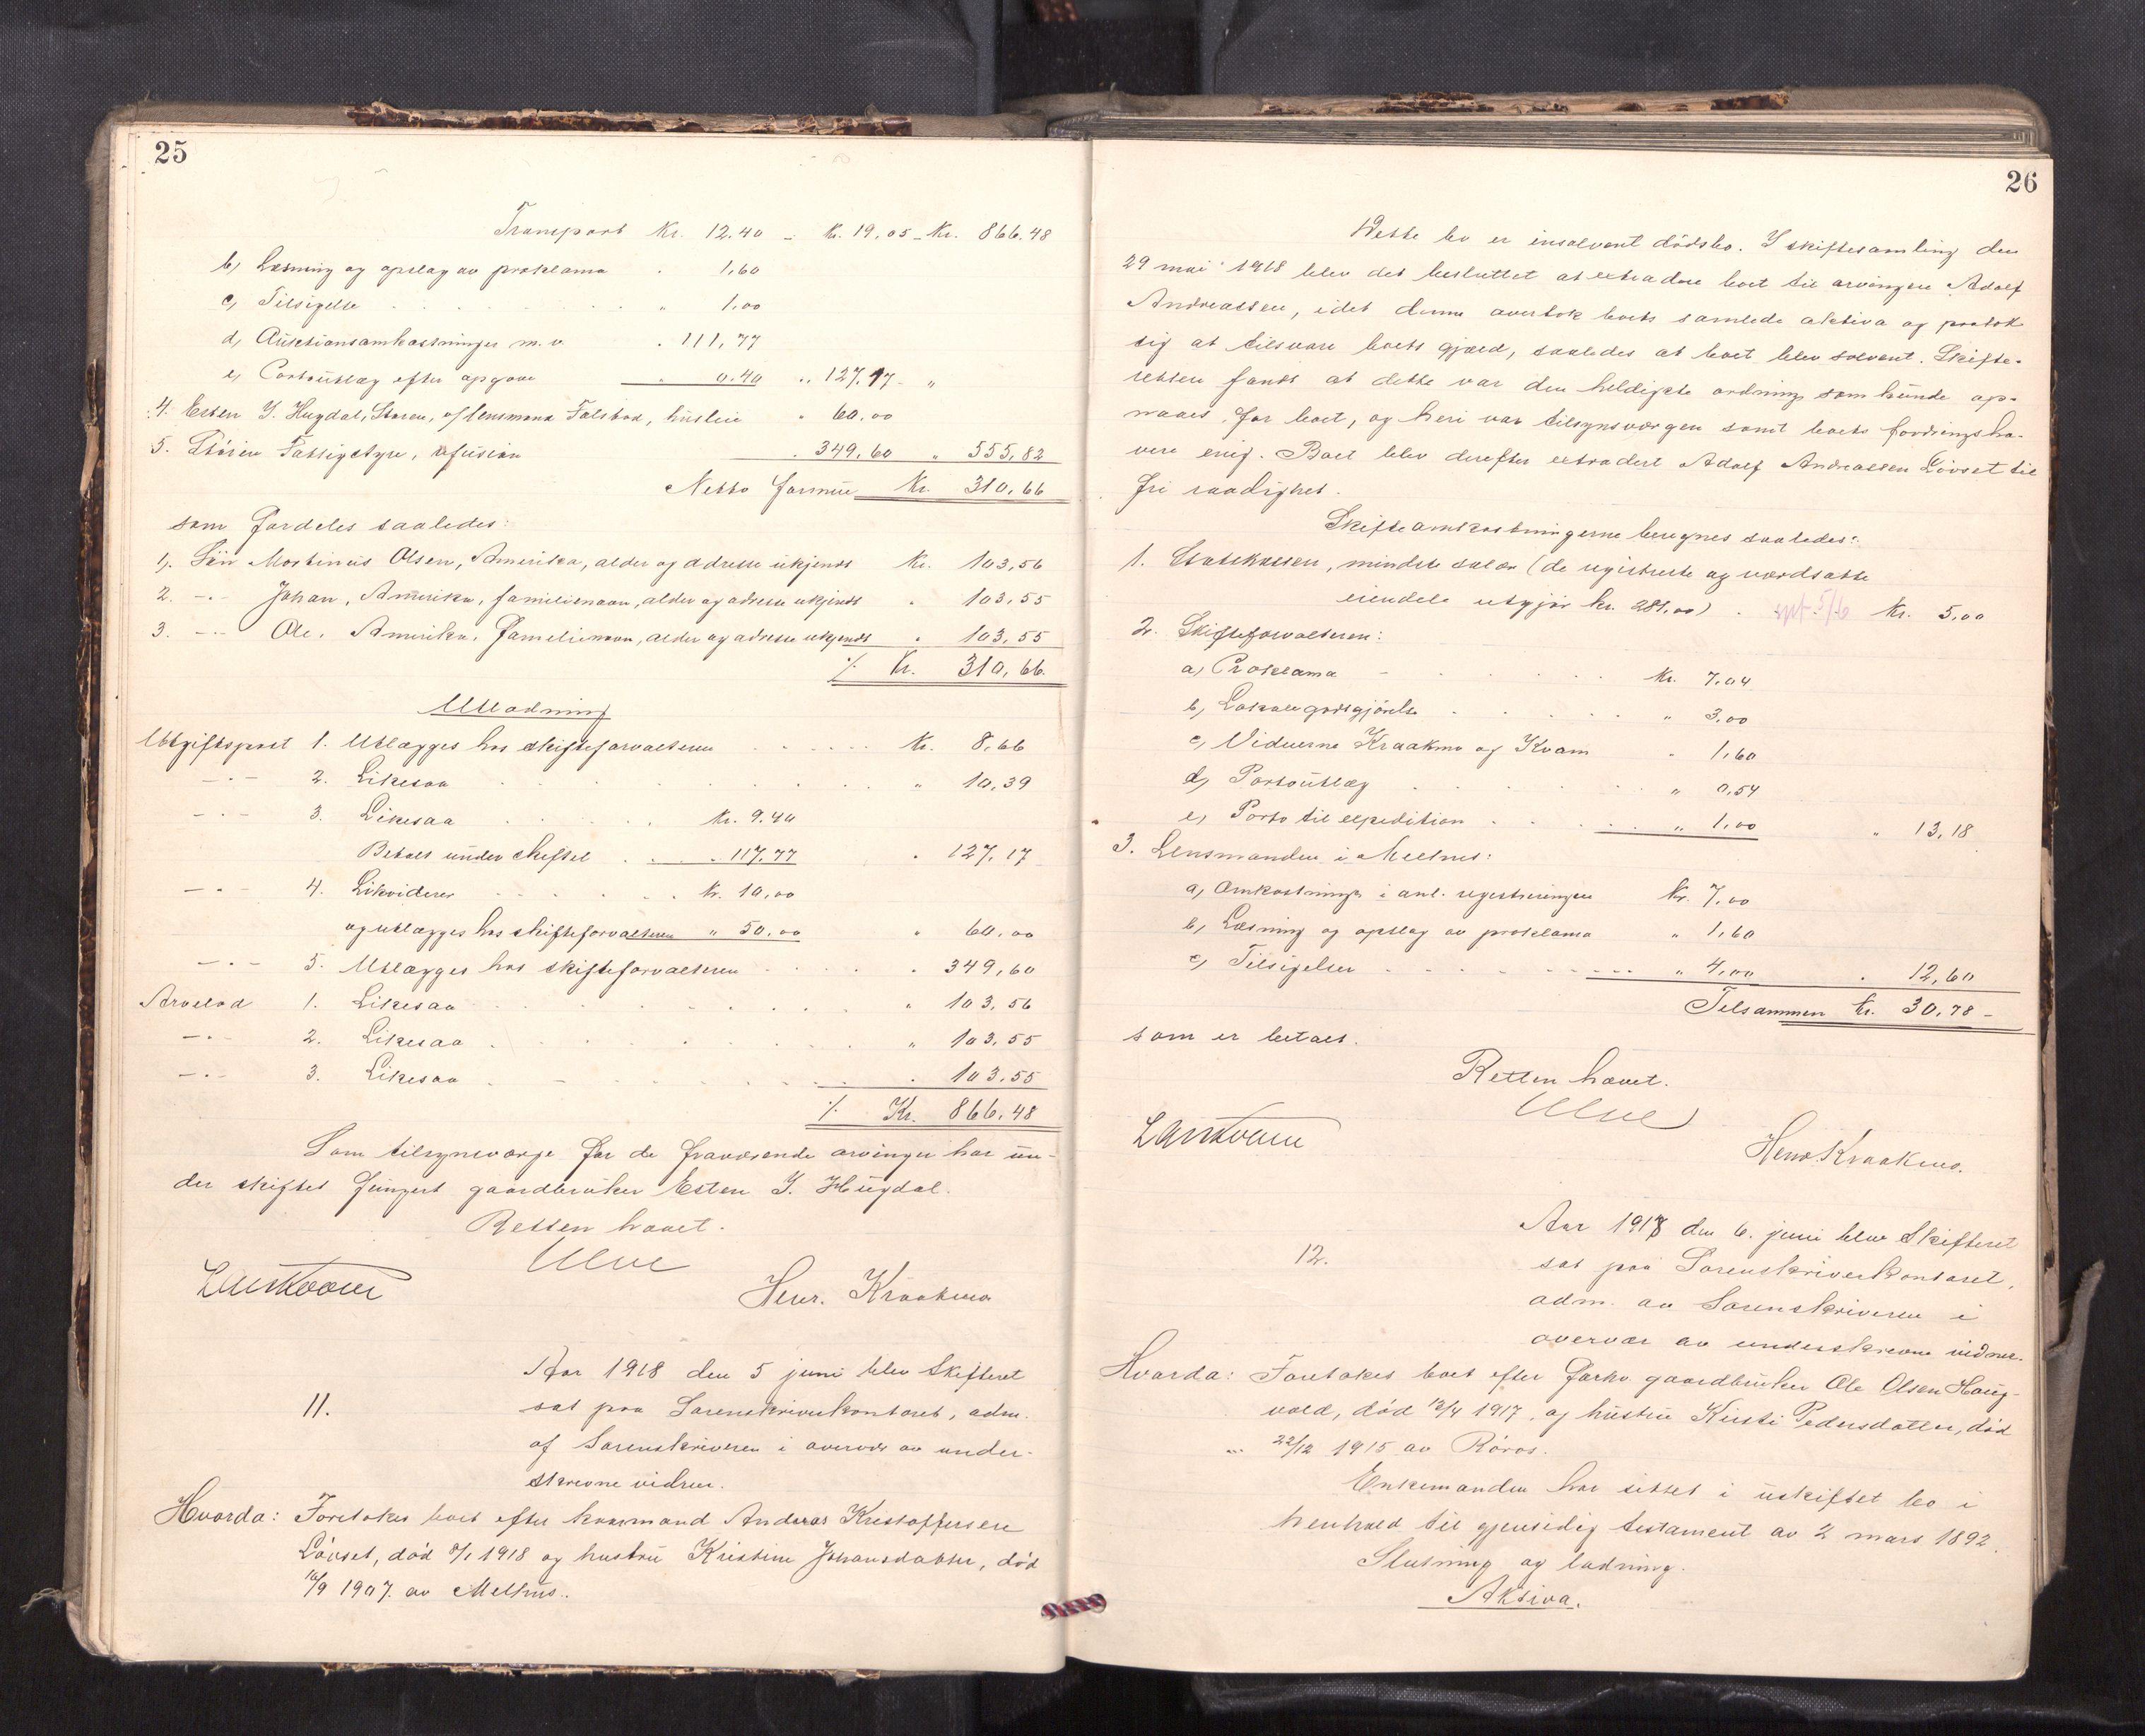 25
Transport Kr. 12.40 - Kr. 19.05 - Kr. 866.48
b, Læsning og opslag av proklama . 1,60
c, Tilsigelse . . . " 1,00
d, Auktionsomkostninger m. v. . 111,77
e, Portoutlæg efter opgave " 0.40 „ 127.17 "
4. Esten J. Hugdal, Støren, v/ lensmand Folstad, husleie " 60.00
5. Støren Fattigstyre, refusion . 349,60 " 555,82
Netto formue Kr. 310,66
som fordeles saaledes:
1. Søn Martinus Olsen, Amerika, alder og adresse ukjendt Kr. 103,56
2. -"- Johan, Amerika, familienavn, alder og adresse ukjendt . 103,55
3. -"- Ole, Amerika, familienavn, alder og adresse ukjendt " 103,55
./. Kr. 310,66.
Utlodning
Utgiftspost 1. Utlægges hos skifteforvalteren Kr. 8,66
-"- 2. Likesaa " 10,39
-"- 3. Likesaa Kr. 9.40
Betalt under skiftet . 117.77 . 127,17
-"- 4. Likviderer Kr. 10,00
og utlægges hos skifteforvalteren " 50.00 " 60,00
-"- 5. Utlægges hos skifteforvalteren . 349,60
Arvelod 1. Likesaa " 103,56
-"- 2. Likesaa " 103,55
-"- 3. Likesaa . 103.55
./. Kr. 866.48
Som tilsynsværge for de fraværende arvinger har un-
der skiftet fungert gaardbruker Esten J. Hugdal.
Retten hævet.
Ulve
Lars Kvam Henr. Kraakmo
11.
Aar 1918 den 5 juni blev Skifteret
sat paa Sorenskriverkontoret, adm.
af Sorenskriveren i overvær av under-
skrevne vidner.
Hvorda: Foretokes boet efter kaarmand Anders Kristoffersen
Løvset, død 8/1 1918 og hustru Kristine Johansdatter, død
10/9 1907. av Melhus.
26
Dette bo er insolvent dødsbo. I skiftesamling den
29 mai 1918 blev det besluttet at extradere boet til arvingen Adolf
Andreassen, idet denne overtok boets samlede aktiva og paatok
sig at tilsvare boets gjæld, saaledes at boet blev solvent. Skifte-
retten fandt at dette var den heldigste ordning som kunde op-
naaes for boet, og heri var tilsynsværgen samt boets fordringsha-
vere enig. Boet blev derefter extradert Adolf Andreassen Løvset til
fri raadighet.
Skifteomkostningerne beregnes saaledes:
1. Statskassen, mindste salær (de registrerte og værdsatte
eiendele utgjør kr. 281,00) . 5/6 Kr. 5,00
2. Skifteforvalteren:
a, Proklama Kr. 7.04
b, Lokalegodtgjørelse " 3.00
c, Vidnerne Kraakmo og Kvam " 1,60
d, Portoutlæg " 0,54
e, Porto til expedition " 1,00 " 13,18
3. Lensmanden i Melhus:
a, Omkostninger i anl. registreringen Kr. 7,00
b, Læsning og opslag av proklama " 1,60
c, Tilsigelser " 4,00 . 12,60
Tilsammen Kr. 30,78 -
som er betalt.
Retten hævet.
Ulve
Lars Kvam Henr. Kraakmo.
12.
Aar 1918 den 6. juni blev Skifteret
sat paa Sorenskriverkontoret,
adm. av Sorenskriveren i
overvær av underskrevne vidner.
Hvorda: Foretokes boet efter forhv. gaardbruker Ole Olsen Haug-
vold, død 12/4 1917, og hustru Kirsti Pedersdatter, død
22/12 1915 av Røros.
Enkemanden har sittet i uskiftet bo i
henhold til gjensidig testament av 2 mars 1892.
Slutning og lodning.
Aktiva.